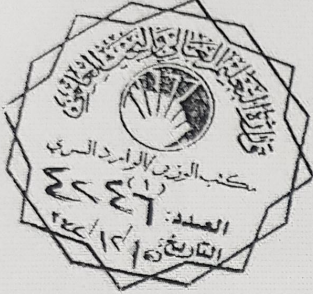 وزارة التعليم العالي والبحث العلمي
مكتب الوزير/الوارد السري
(١)
العدد: ٤٢٤٦
التاريخ: ١٥/١٢/